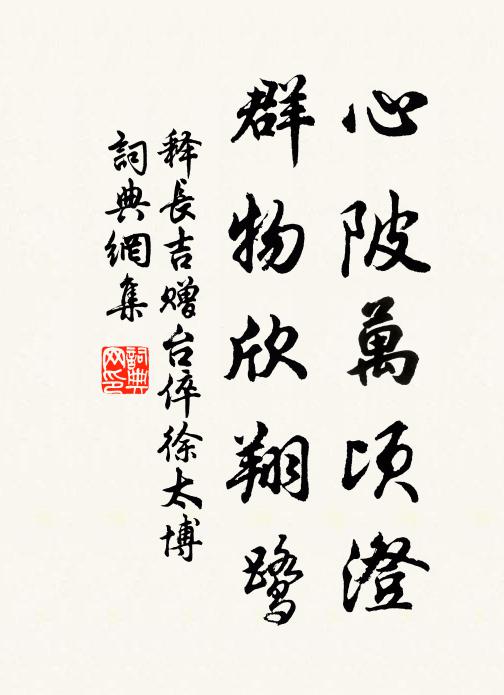 心陂萬頃澄
群物欣翔鷺
释長吉赠台倅徐太博
詞典網集
詞典网印